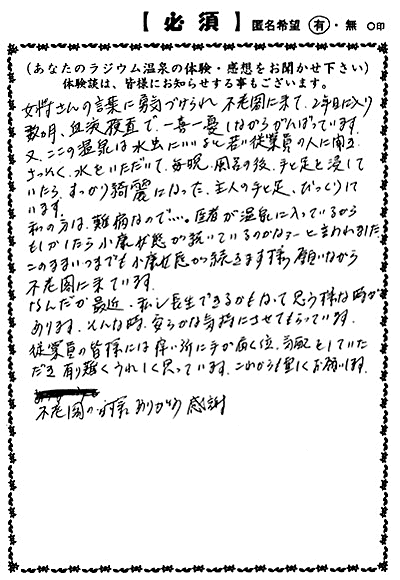 【必須】 匿名希望 有・無 ○印
(あなたのラジウム温泉の体験・感想をお聞かせ下さい)
体験談は、皆様にお知らせする事もございます。
女将さんの言葉に勇気づけられ 不老閣に来て、2年目に入り
数ヵ月、血液検査で、一喜一憂しながらがんばっています。
又、ここの温泉は水虫にいいよと若い従業員の人に聞き
さっそく、水をいただいて、毎晩、風呂の後、手と足を浸して
いたら、すっかり綺麗になった、主人の手と足、びっくりして
います。
私の方は、難病なので…。医者が温泉に入っているから
もしかしたら小康状態が続いているのかなぁーと言われました
このままいつまでも小康状態が続きます様、願いながら
不老閣に来ています。
なんだか最近、私し長生できるかもねって思う様な時が
あります、そんな時、安らかな気持にさせてもらっています。
従業員の皆様には痒い所に手が届く位、気配をしていた
だき有り難くうれしく思っています、これからも宜しくお願います。
不老閣の皆様 ありがとう 感謝